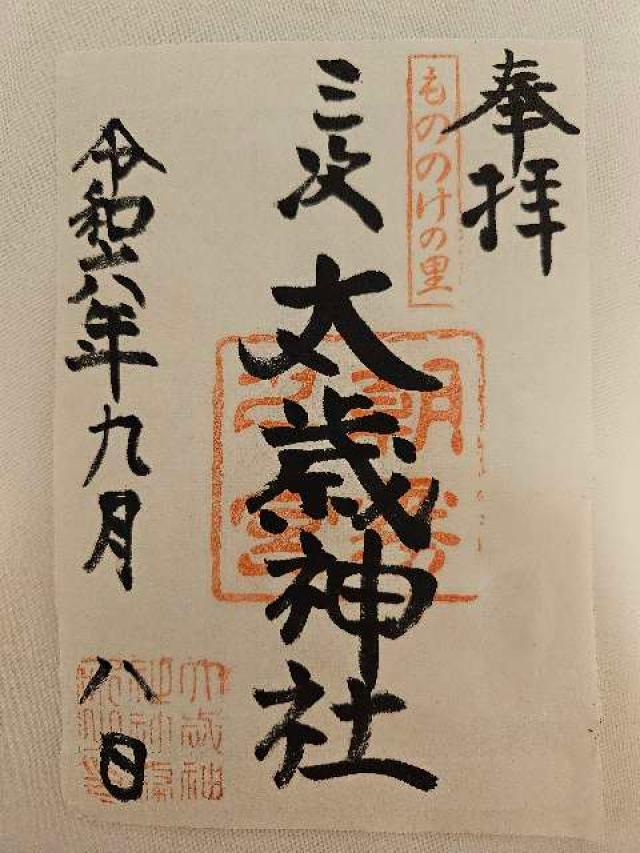 奉拝
もののけの里
三次
太歳神社
令和六年九月八日